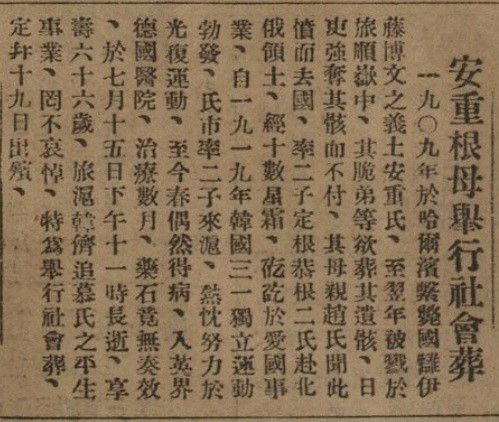 安重根母舉行社會葬
一九〇九年於哈爾濱擊斃國讎伊
藤博文之義士安重氏、至翌年被戮於
旅順獄中、其脆弟等欲葬其遺骸、日
吏強奪其骸而不付、其母親趙氏聞此
憤而去國、率二子定根恭根二氏赴北
俄領土、經十數星霜、矻矻於愛國事
業、自一九一九年韓國三一獨立運動
勃發、氏亦率二子來滬、熱忱努力於
光復運動、至今春偶然得病、入英界
德國醫院、治療數月、藥石竟無奏效
、於七月十五日下午十一時長逝、享
壽六十六歲、旅滬韓儕追慕氏之平生
事業、罔不哀悼、特爲舉行社會葬、
定於十九日出殯、